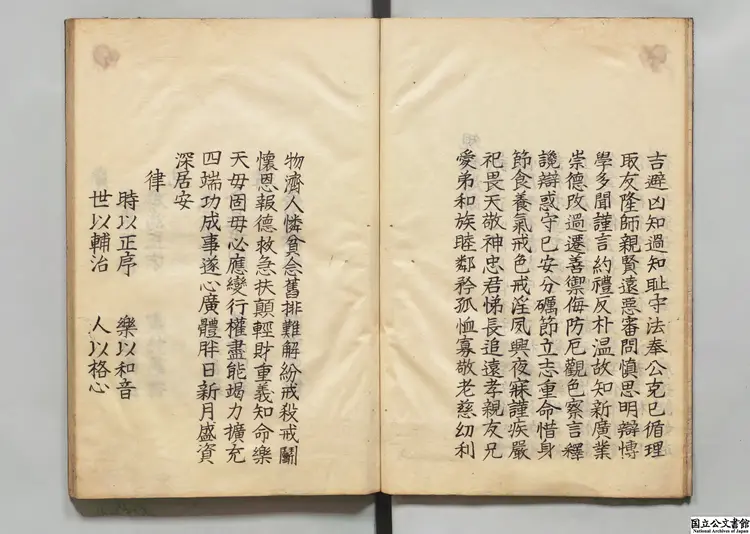 吉避凶知過知耻守法奉公克己循理
取友隆師親賢遠惡審問慎思明辯博
學多聞謹言約禮反朴温故知新廣業
崇德改過遷善禦侮防厄觀色察言釋
讒辯惑守己安分礪節立志重命惜身
節食養氣戒色戒淫夙興夜寐謹疾嚴
祀畏天敬神忠君悌長追遠孝親友兄
愛弟和族睦鄰矜孤恤寡敬老慈幼利
物濟人憐貧念舊排難解紛戒殺戒鬭
懷恩報德救急扶顛輕財重義知命樂
天毋固毋必應變行權盡能竭力擴充
四端功成事遂心廣體胖日新月盛資
深居安
律
時以正序 樂以和音
世以輔治 人以格心
国立公文書館
National Archives of Japan